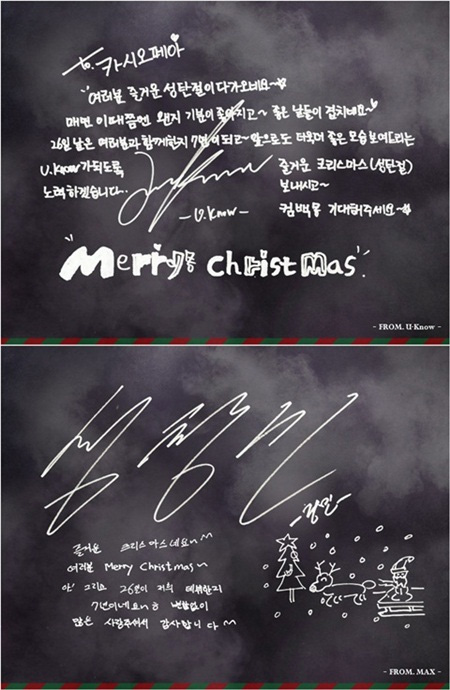 to. 카시오페아
여러분 즐거운 성탄절이 다가오네요~
매년 이맘쯤엔 왠지 기분이 좋아지고~ 좋은 날들이 겹치네요~
26일 날은 여러분과 함께한지 7년이 되고~ 앞으로도 더욱더 좋은 모습 보여드리는
U.Know가 되도록
노력하겠습니다..
즐거운 크리스마스(성탄절)
보내시고~
컴백도 기대해주세요~
-U.Know-
"Merry christmas"
- FROM. U-Know -
-창민-
즐거운 크리스마스네요ㅡ^^
여러분 Merry Christmas~
아! 그리고 26일이 저희 데뷔한지
7년이네요ㅡㅎ 변함없이
많은 사랑주셔서 감사합니다^^
- FROM. MAX -